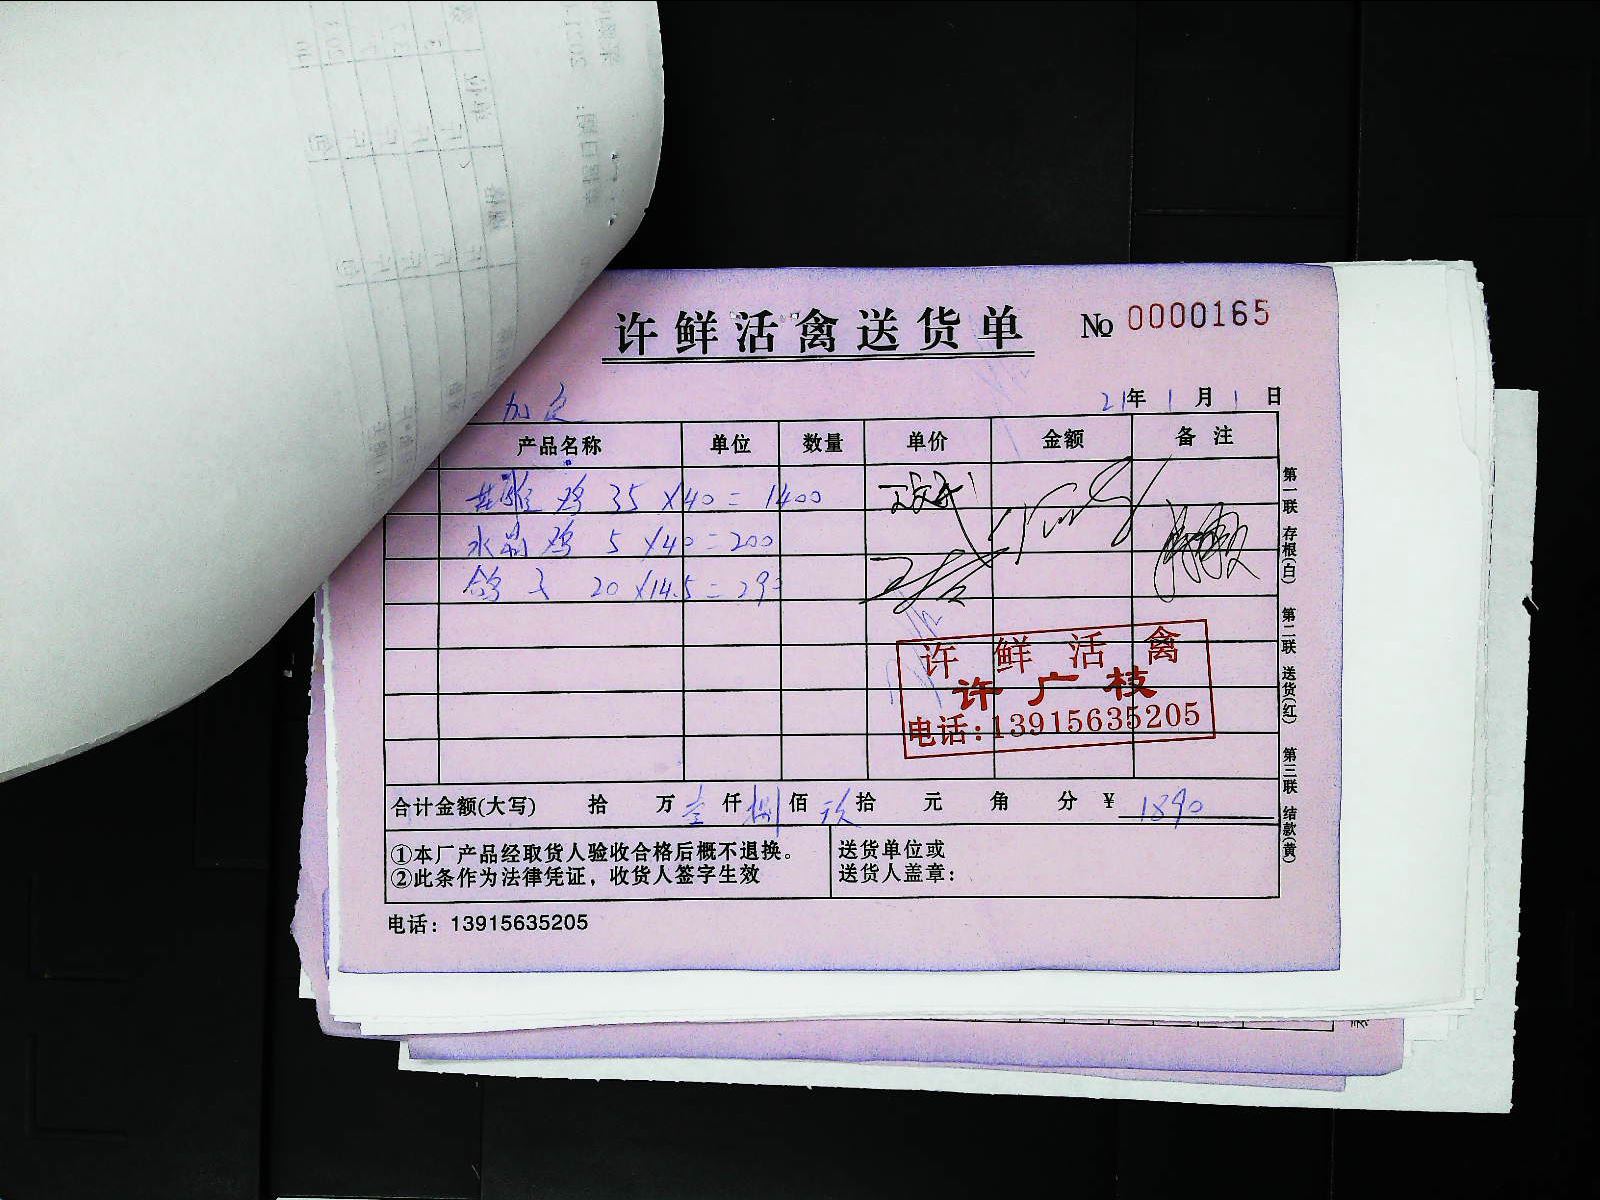 许鲜活禽送货单 No 0000165
21年 1月 1日
产品名称 单位 数量 单价 金额 备注
鸡 35 X 40 = 1400
水晶鸡 5 X 40 = 200
鸽子 20 X 14.5 = 290
许鲜活禽
许广枝
电话:13915635205
合计金额(大写) 拾 万 壹 仟 捌 佰 玖 拾 元 角 分 ¥ 1890
①本厂产品经取货人验收合格后概不退换。
②此条作为法律凭证，收货人签字生效
送货单位或
送货人盖章：
电话：13915635205
第一联 存根(白) 第二联 送货(红) 第三联 结款(黄)